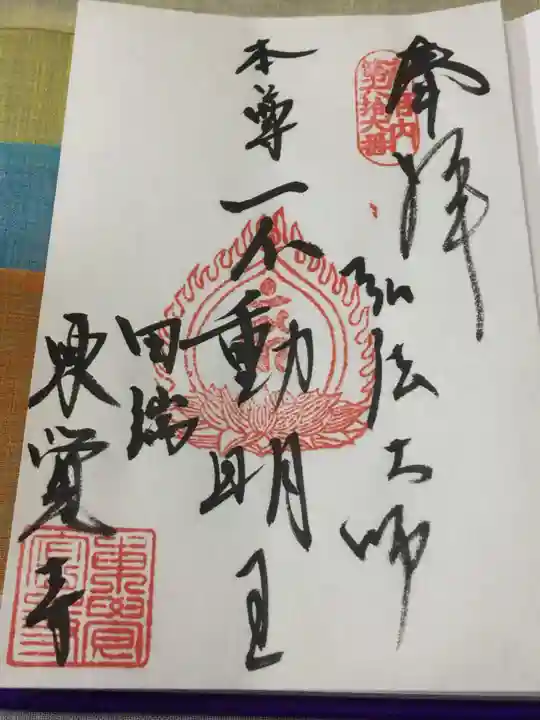 奉拝
弘法大師
本尊 不動明王
田端
東覚寺